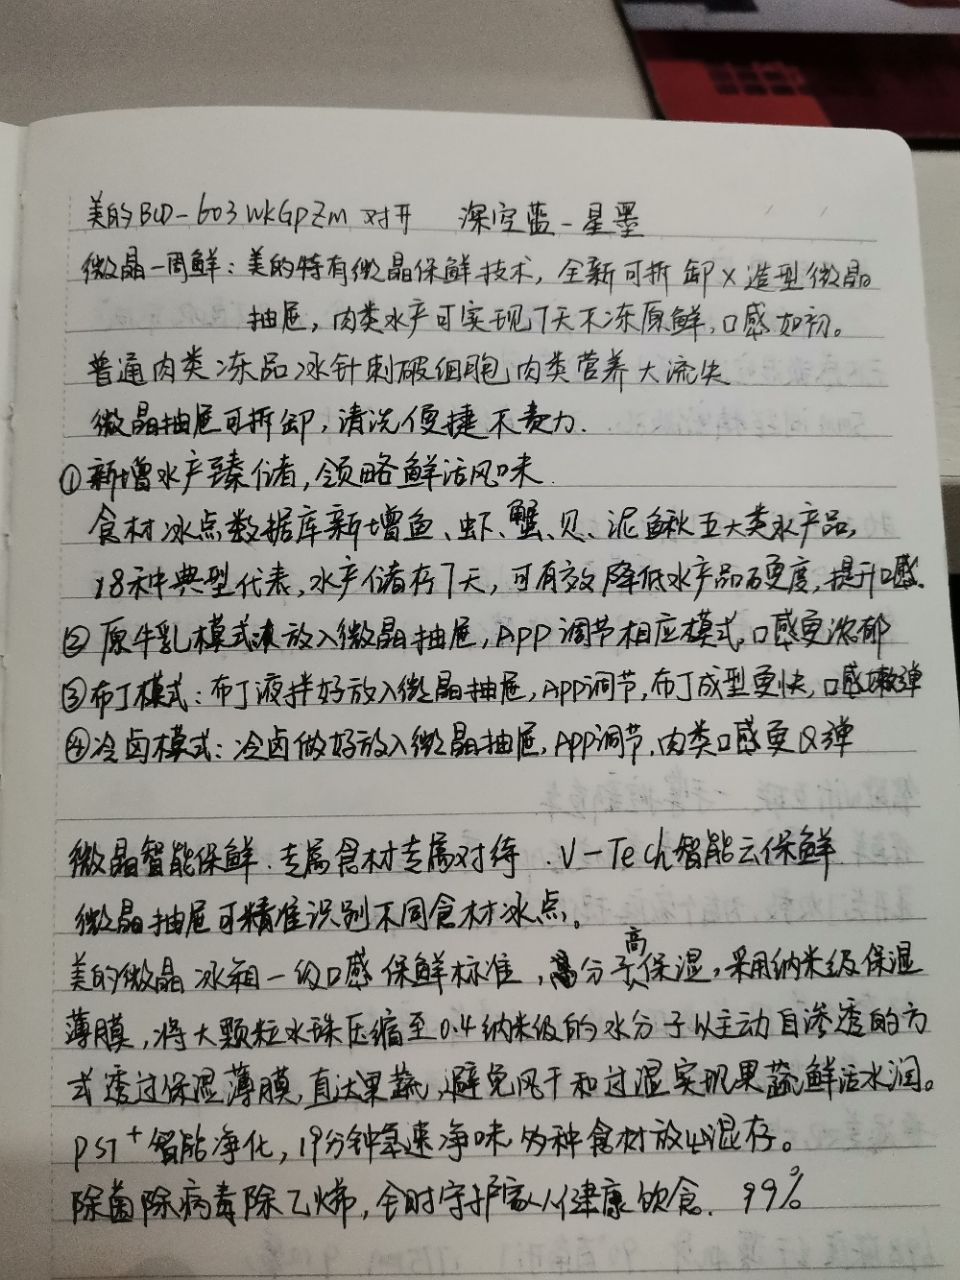 美的BCD-603WKGPZM 对开 深空蓝-星墨
微晶一周鲜:美的特有微晶保鲜技术,全新可拆卸X造型微晶
抽屉,肉类水产可实现7天不冻原鲜,口感如初。
普通肉类冻品冰针刺破细胞,肉类营养大流失
微晶抽屉可拆卸,清洗便捷不费力.
①新增水产臻储,领略鲜活风味.
食材冰点数据库新增鱼、虾、蟹、贝、泥鳅五大类水产品,
18种典型代表,水产储存7天,可有效降低水产品硬度,提升口感.
②原牛乳模式液放入微晶抽屉,APP调节相应模式,口感更浓郁
③布丁模式:布丁液拌好放入微晶抽屉,APP调节,布丁成型更快,口感嫩弹
④冷卤模式:冷卤做好放入微晶抽屉,APP调节,肉类口感更Q弹
微晶智能保鲜.专属食材专属对待.V-Tech智能云保鲜
微晶抽屉可精准识别不同食材冰点。
美的微晶冰箱一级口感保鲜标准,高分子保湿,采用纳米级保湿
薄膜,将大颗粒水珠压缩至0.4纳米级的水分子以主动自渗透的方
式透过保湿薄膜,直达果蔬,避免风干和过湿实现果蔬鲜活水润。
PST+智能净化,19分钟急速净味多种食材放心混存。
除菌除病毒除乙烯,全时守护家人健康饮食. 99%